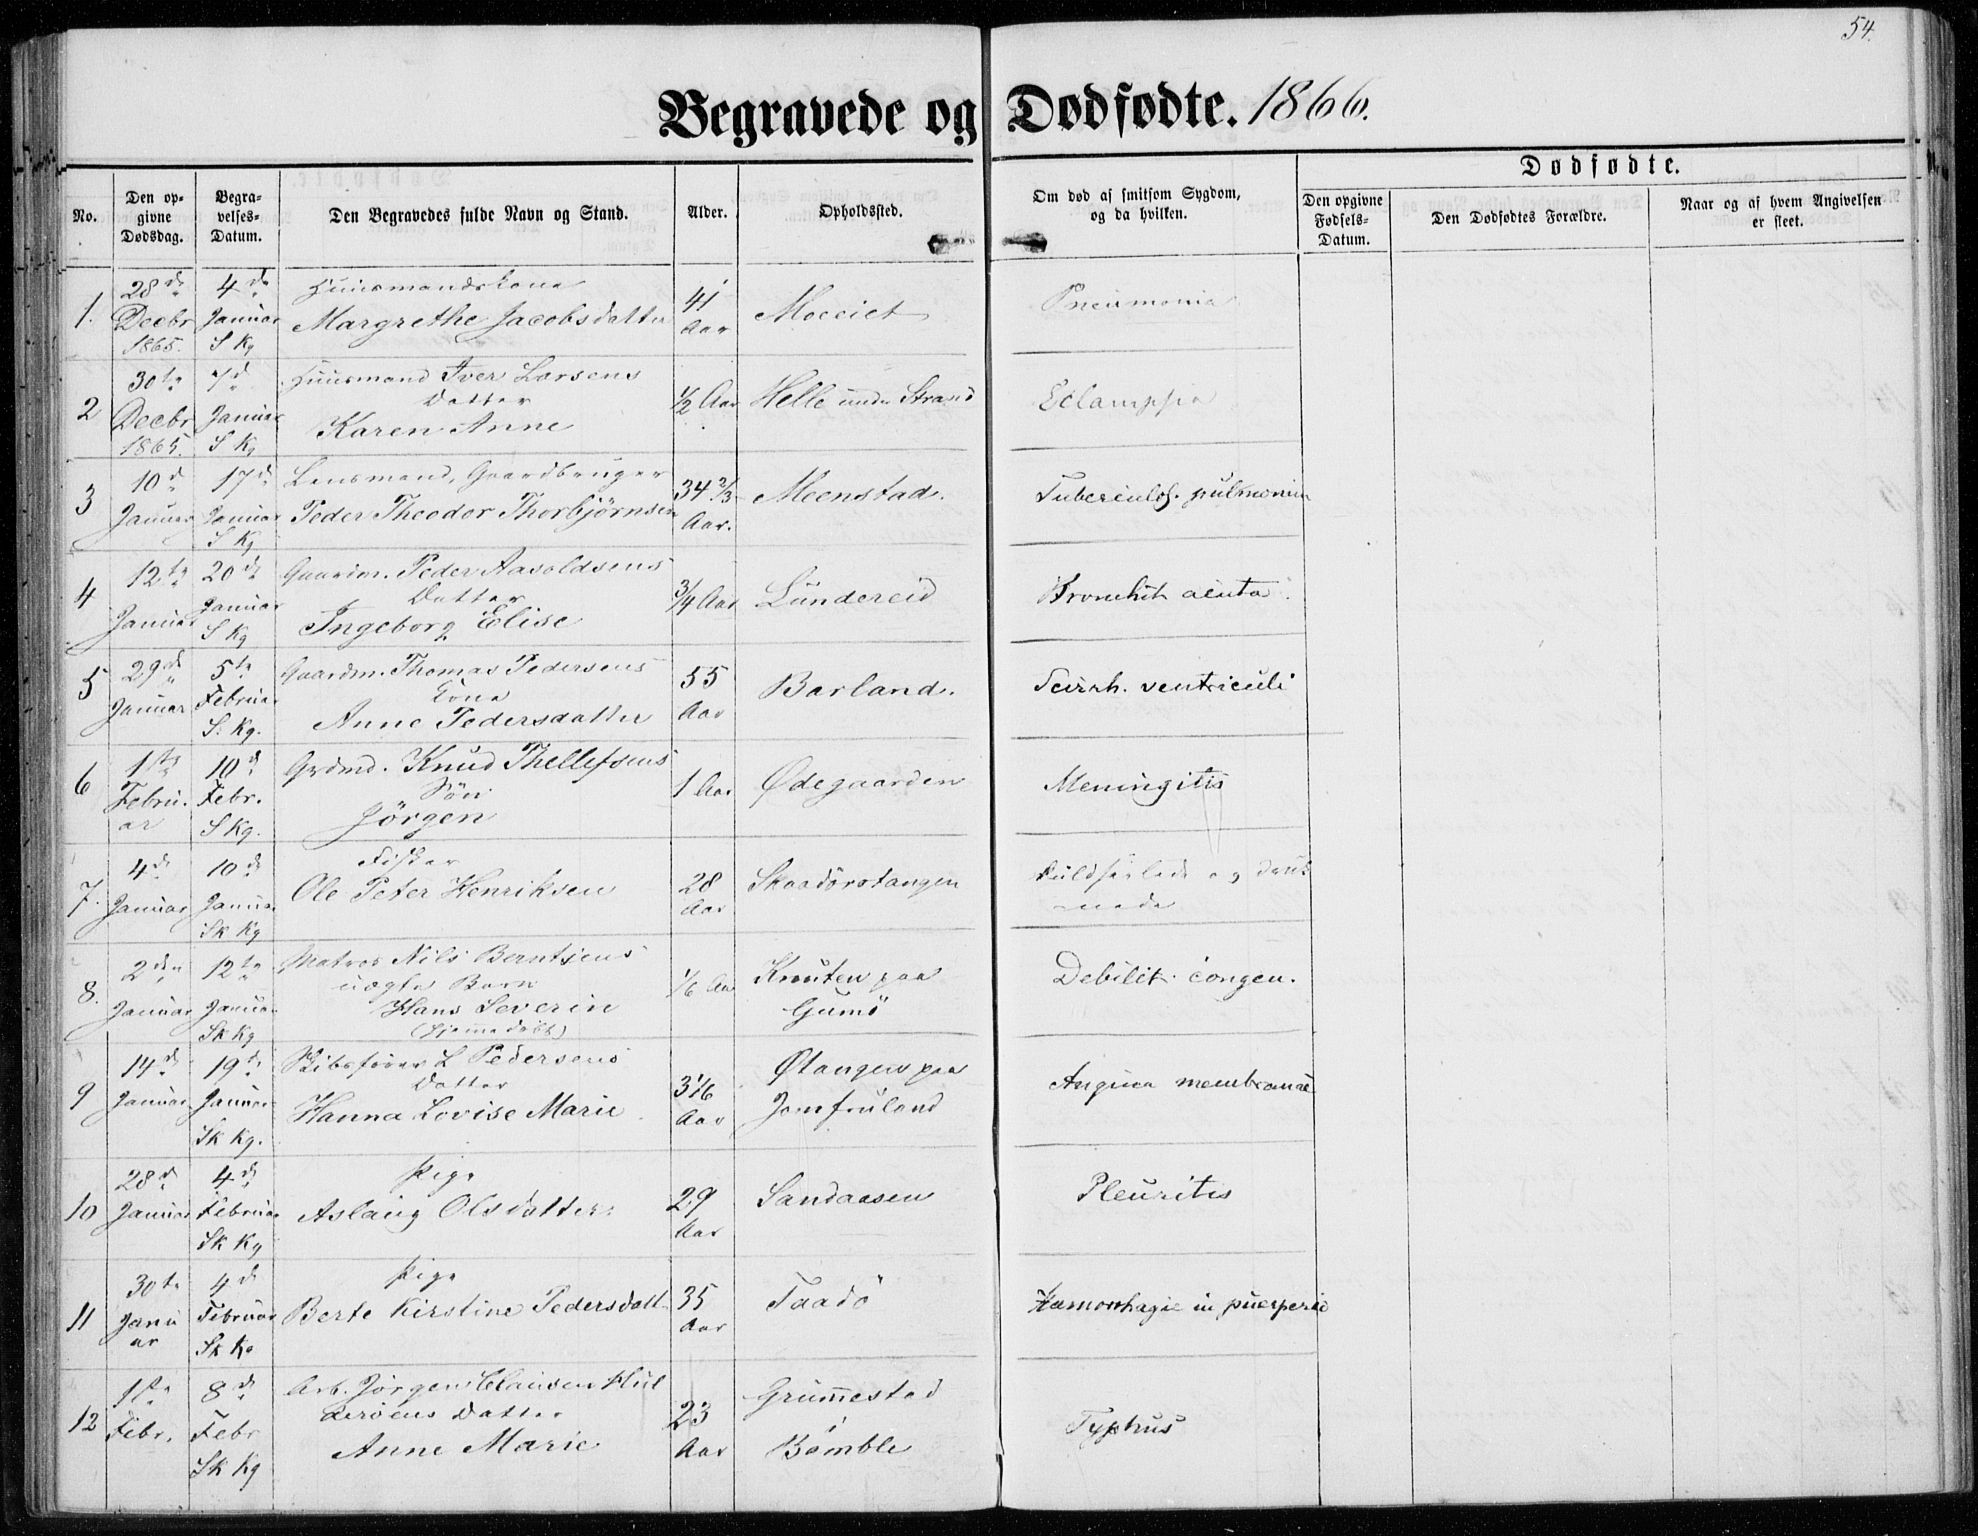 54.
Begravede og Dødfødte. 1866.
No.
Den op-
givne
Dødsdag.
Begra-
velses-
Datum.
Den Begravedes fulde Navn og Stand.
Alder.
Opholdssted.
Om død af smitsom Sygdom,
og da hvilken.
Dødfødte.
Den opgivne
Fødsels-
Datum.
Den Dødfødtes Forældre.
Naar og af hvem Angivelsen
er skeet.
1.
28de
Decbr
1865.
4de
Januar
S Kg
Huusmandskone
Margrethe Jacobsdatter
41
Aar
Moeeiet
Pneumonia
2
30te
Decbr
1865.
7de
Januar
S Kg
Huusmand Iver Larsens
Datter
Karen Anne
1/2 Aar
Helle under Strand
Eclampsia
3
10de
Januar
17de
Januar
S Kg
Lensmand, Gaardbruger
Peder Theodor Thorbjørnsen
34 2/3
Aar.
Meenstad.
Tuberculos. pulmonum
4
12te
Januar
20de
Januar
S Kg
Gaardm. Peder Aasoldsens
Datter
Ingeborg Elise
3/4 Aar
Lundereid
Bronchit acuta
5
29de
Januar
5te
Februar
S. Kg.
Gaardm. Thomas Pedersens
Kone
Anne Pedersdatter
55
Aar
Barland.
Scirrh. ventriculi
6
1ste
Febru-
ar
10de
Febr.
S Kg.
Grdmd. Knud Thellefsens
Søn
Jörgen
1 Aar
Ødegaarden
Meningitis
7.
4de
Januar
10de
Januar
Sk Kg
Fisker
Ole Peter Henriksen
28
Aar
Skaadörstangen
Kuldseilede og druk
nede
8.
2den
Januar
12te
Januar
Sk Kg
Matros Nils Berntsens
uægte Barn
Hans Severin
(hjemmedøbt)
1/6 Aar
Knuten paa
Gumö
Debilit. congen.
9
14de
Januar
19de
Januar
Sk Kg.
Skibsfører L Pedersens
Datter
Hanna Lovise Marie
3 1/6
Aar
Øtangen paa
Jomfruland
Angina membranac
10
28de
Januar
4de
Februar
Sk Kg
Pige
Aslaug Olsdatter
29
Aar
Sandaasen
Pleuritis
11
30te
Janu
ar
4de
Februar
Sk Kg
Pige
Berte Kirstine Pedersdatt.
35
Aar
Taadö
Hæmorrhagie in puerperio
12
1ste
Febr.
8de
Febr
Sk Kg
Arb. Jörgen Clausen Hul
deröens Datter
Anne Marie
23
Aar
Grummestad
Bamble
Typhus